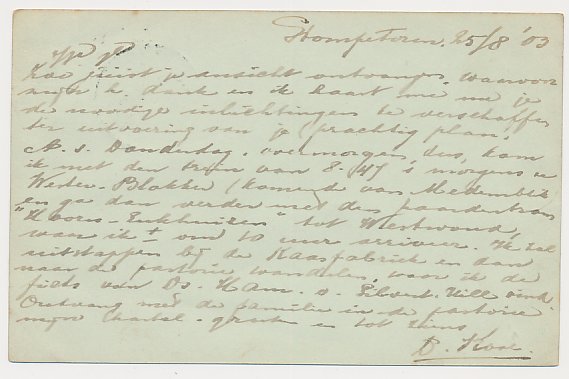 Stompetoren, 25/8 '03
Zoo juist je ansicht ontvangen, waarvoor
mijn h. dank en ik haast me nu je
de noodige inlichtingen te verschaffen
ter uitvoering van je prachtig plan.
A.s. Donderdag, overmorgen dus, kom
ik met den trein van 8.47 's morgens in
Wester-Blokker (komend van Medemblik
en ga dan verder met den paardentram
"Hoorn-Enkhuizen" tot Westwoud,
waar ik ± om 10 uur arriveer. Ik zal
uitstappen bij de Kaasfabriek en dan
naar de pastorie wandelen, waar ik de
fiets van Ds. Ham. v.
Ontvang met de familie in de pastorie
mijne hartel. groeten en tot ziens
D. Koor.